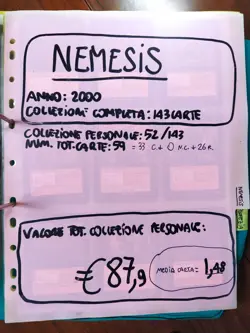 NEMESIS
ANNO: 2000
COLLEZIONE COMPLETA: 143 CARTE
COLLEZIONE PERSONALE: 52/143
NUM. TOT. CARTE: 59 = 33 C. + 0 N.C. + 26 R.
VALORE TOT. COLLEZIONE PERSONALE:
€ 87,9
MEDIA CARTA = 1,48